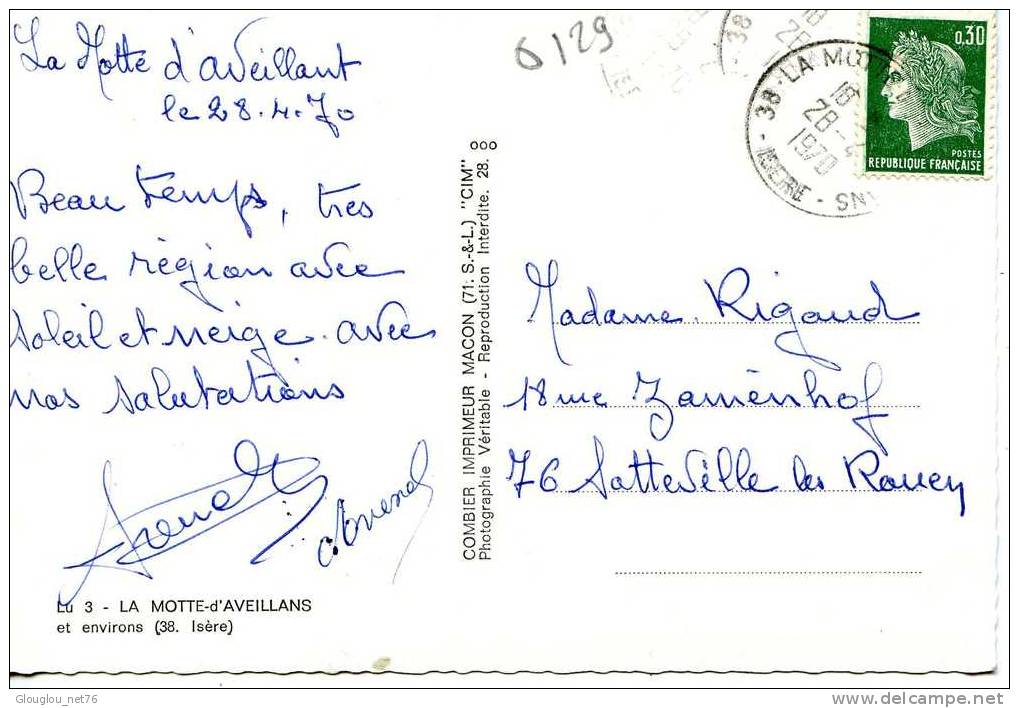 La Motte d'aveillant
le 28.4.70
Beau temps, tres
belle région avec
soleil et neige. avec
nos salutations
Lu 3 - LA MOTTE-d'AVEILLANS
et environs (38. Isère)
COMBIER IMPRIMEUR MACON (71: S.-&-L.) "CIM"
Photographie Véritable - Reproduction Interdite. 28.
ooo
6129
38 - LA MOTTE
18
28-4
1970
ISERE
0,30
POSTES
REPUBLIQUE FRANÇAISE
Madame Rigaud
18 rue Zamenhof
76 Sotteville les Rouen
Glouglou_net76
delcampe.net